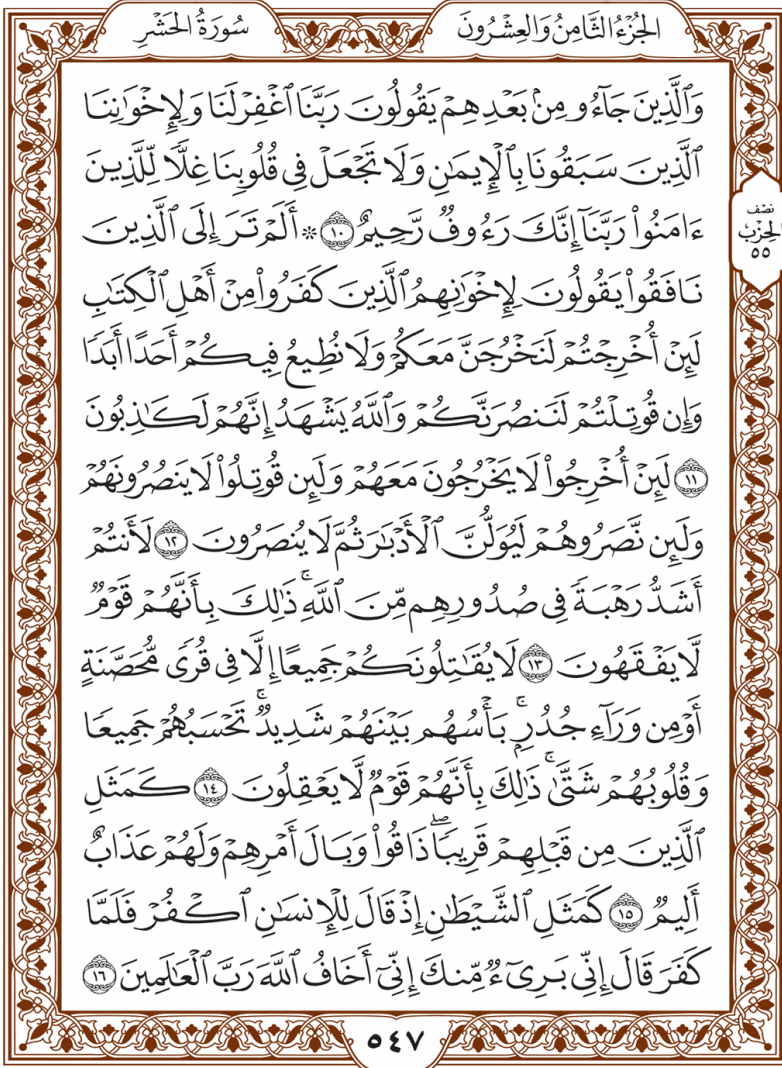 الجُزْءُ الثَّامِنُ وَالعِشْرُونَ
سُورَةُ الحَشْرِ
وَٱلَّذِينَ جَآءُو مِنۢ بَعْدِهِمْ يَقُولُونَ رَبَّنَا ٱغْفِرْ لَنَا وَلِإِخْوَٰنِنَا
ٱلَّذِينَ سَبَقُونَا بِٱلْإِيمَٰنِ وَلَا تَجْعَلْ فِى قُلُوبِنَا غِلًّا لِّلَّذِينَ
ءَامَنُوا۟ رَبَّنَآ إِنَّكَ رَءُوفٌ رَّحِيمٌ ١٠ ۞ أَلَمْ تَرَ إِلَى ٱلَّذِينَ
نَافَقُوا۟ يَقُولُونَ لِإِخْوَٰنِهِمُ ٱلَّذِينَ كَفَرُوا۟ مِنْ أَهْلِ ٱلْكِتَٰبِ
لَئِنْ أُخْرِجْتُمْ لَنَخْرُجَنَّ مَعَكُمْ وَلَا نُطِيعُ فِيكُمْ أَحَدًا أَبَدًا
وَإِن قُوتِلْتُمْ لَنَنصُرَنَّكُمْ وَٱللَّهُ يَشْهَدُ إِنَّهُمْ لَكَٰذِبُونَ
١١ لَئِنْ أُخْرِجُوا۟ لَا يَخْرُجُونَ مَعَهُمْ وَلَئِن قُوتِلُوا۟ لَا يَنصُرُونَهُمْ
وَلَئِن نَّصَرُوهُمْ لَيُوَلُّنَّ ٱلْأَدْبَٰرَ ثُمَّ لَا يُنصَرُونَ ١٢ لَأَنتُمْ
أَشَدُّ رَهْبَةً فِى صُدُورِهِم مِّنَ ٱللَّهِ ۚ ذَٰلِكَ بِأَنَّهُمْ قَوْمٌ
لَّا يَفْقَهُونَ ١٣ لَا يُقَٰتِلُونَكُمْ جَمِيعًا إِلَّا فِى قُرًى مُّحَصَّنَةٍ
أَوْ مِن وَرَآءِ جُدُرٍۭ ۚ بَأْسُهُم بَيْنَهُمْ شَدِيدٌ ۚ تَحْسَبُهُمْ جَمِيعًا
وَقُلُوبُهُمْ شَتَّىٰ ۚ ذَٰلِكَ بِأَنَّهُمْ قَوْمٌ لَّا يَعْقِلُونَ ١٤ كَمَثَلِ
ٱلَّذِينَ مِن قَبْلِهِمْ قَرِيبًا ۖ ذَاقُوا۟ وَبَالَ أَمْرِهِمْ وَلَهُمْ عَذَابٌ
أَلِيمٌ ١٥ كَمَثَلِ ٱلشَّيْطَٰنِ إِذْ قَالَ لِلْإِنسَٰنِ ٱكْفُرْ فَلَمَّا
كَفَرَ قَالَ إِنِّى بَرِىٓءٌ مِّنكَ إِنِّىٓ أَخَافُ ٱللَّهَ رَبَّ ٱلْعَٰلَمِينَ ١٦
نصف
الحزب
٥٥
٥٤٧